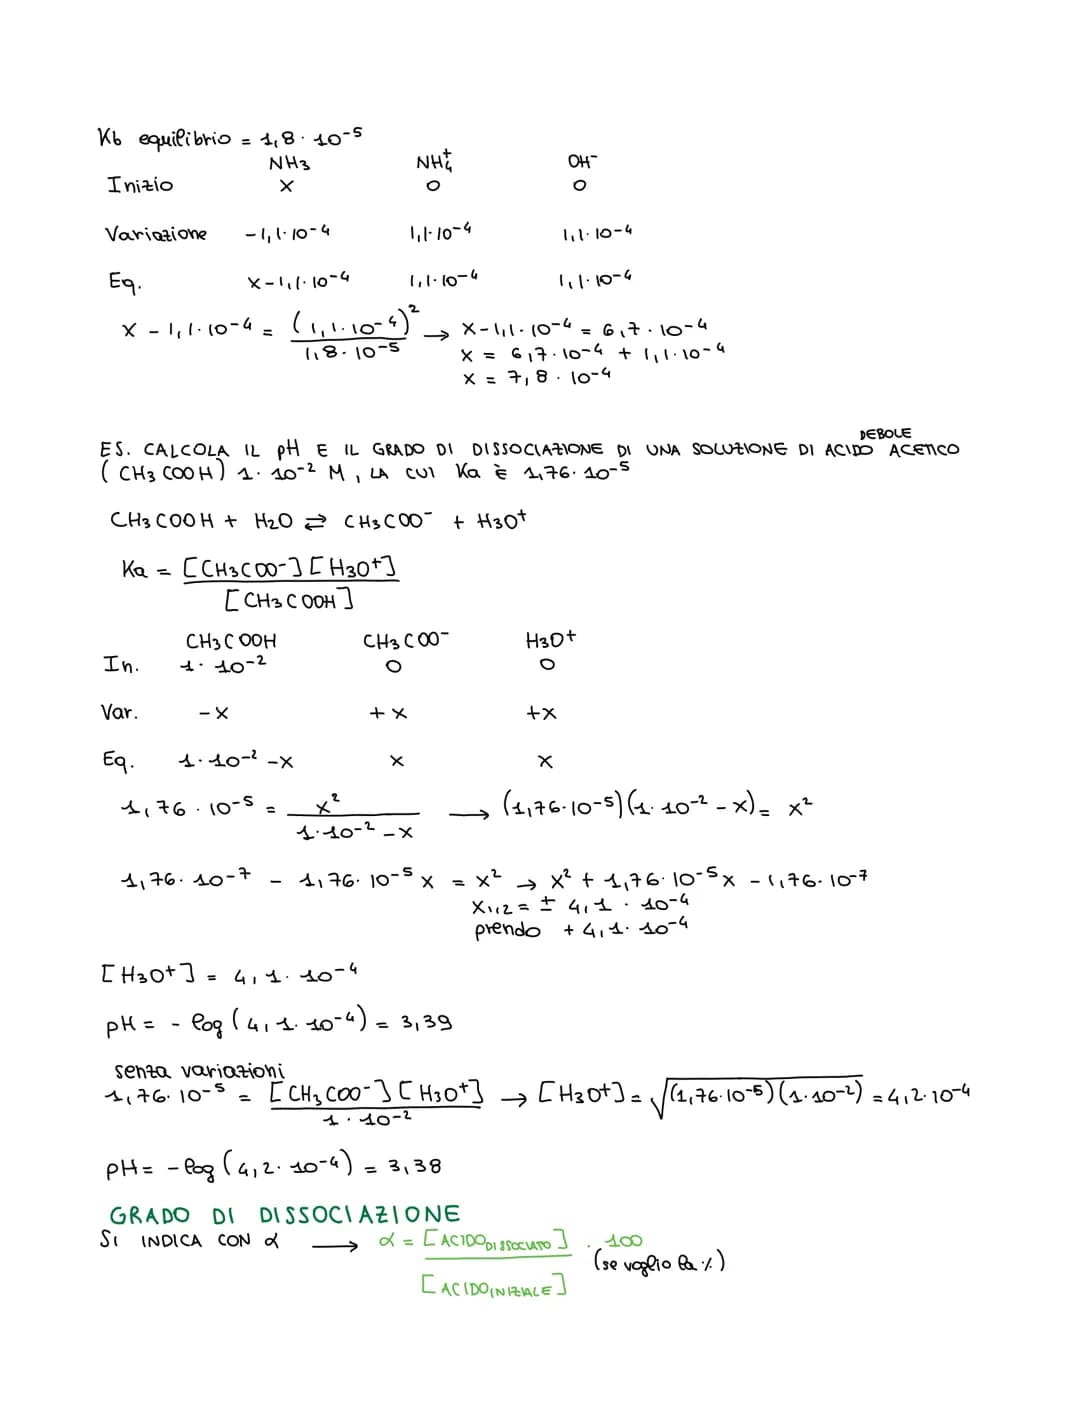 Kb equilibrio = 1,8 · 10⁻⁵
NH3 NH4⁺ OH⁻
Inizio x 0 0
Variazione -1,1·10⁻⁴ 1,1·10⁻⁴ 1,1·10⁻⁴
Eq. x-1,1·10⁻⁴ 1,1·10⁻⁴ 1,1·10⁻⁴
x - 1,1·10⁻⁴ = (1,1·10⁻⁴)² / 1,8·10⁻⁵ → x-1,1·10⁻⁴ = 6,7·10⁻⁴
x = 6,7·10⁻⁴ + 1,1·10⁻⁴
x = 7,8·10⁻⁴
ES. CALCOLA IL pH E IL GRADO DI DISSOCIAZIONE DI UNA SOLUZIONE DI ACIDO DEBOLE ACETICO
(CH3COOH) 1·10⁻² M, LA CUI Ka è 1,76·10⁻⁵
CH3COOH + H2O ⇄ CH3COO⁻ + H3O⁺
Ka = [CH3COO⁻][H3O⁺] / [CH3COOH]
CH3COOH CH3COO⁻ H3O⁺
In. 1·10⁻² 0 0
Var. -x +x +x
Eq. 1·10⁻² -x x x
1,76·10⁻⁵ = x² / 1·10⁻² - x → (1,76·10⁻⁵)(1·10⁻² - x) = x²
1,76·10⁻⁷ - 1,76·10⁻⁵x = x² → x² + 1,76·10⁻⁵x - 1,76·10⁻⁷
x₁,₂ = ± 4,1·10⁻⁴
prendo + 4,1·10⁻⁴
[H3O⁺] = 4,1·10⁻⁴
pH = - log (4,1·10⁻⁴) = 3,39
senza variazioni
1,76·10⁻⁵ = [CH3COO⁻][H3O⁺] / 1·10⁻² → [H3O⁺] = √(1,76·10⁻⁵)(1·10⁻²) = 4,2·10⁻⁴
pH = - log (4,2·10⁻⁴) = 3,38
GRADO DI DISSOCIAZIONE
SI INDICA CON α → α = [ACIDO DISSOCIATO] / [ACIDO INIZIALE] · 100
(se voglio la %)